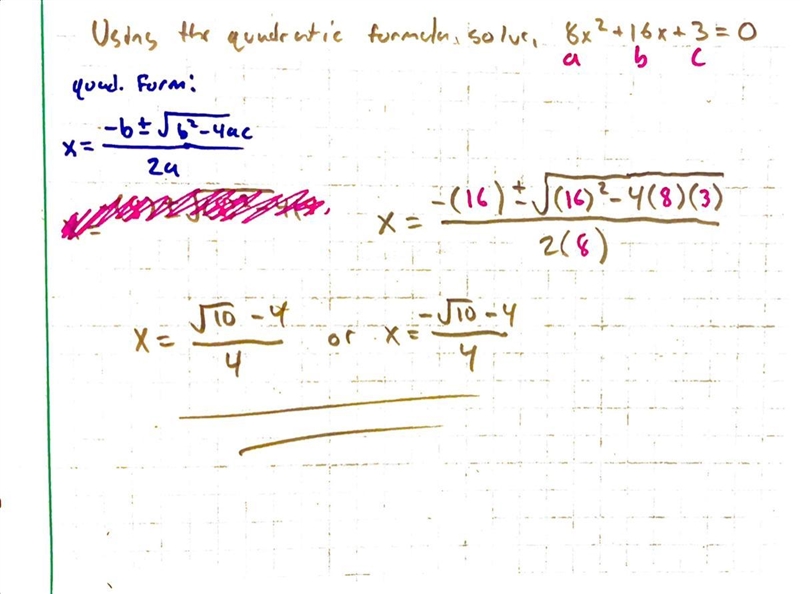 Using the quadratic formula, solve, 8x² + 16x + 3 = 0
a b c
quad. Form:
x = (-b ± √(b² - 4ac)) / 2a
x = (-(16) ± √((16)² - 4(8)(3))) / 2(8)
x = (√10 - 4) / 4 or x = (-√10 - 4) / 4